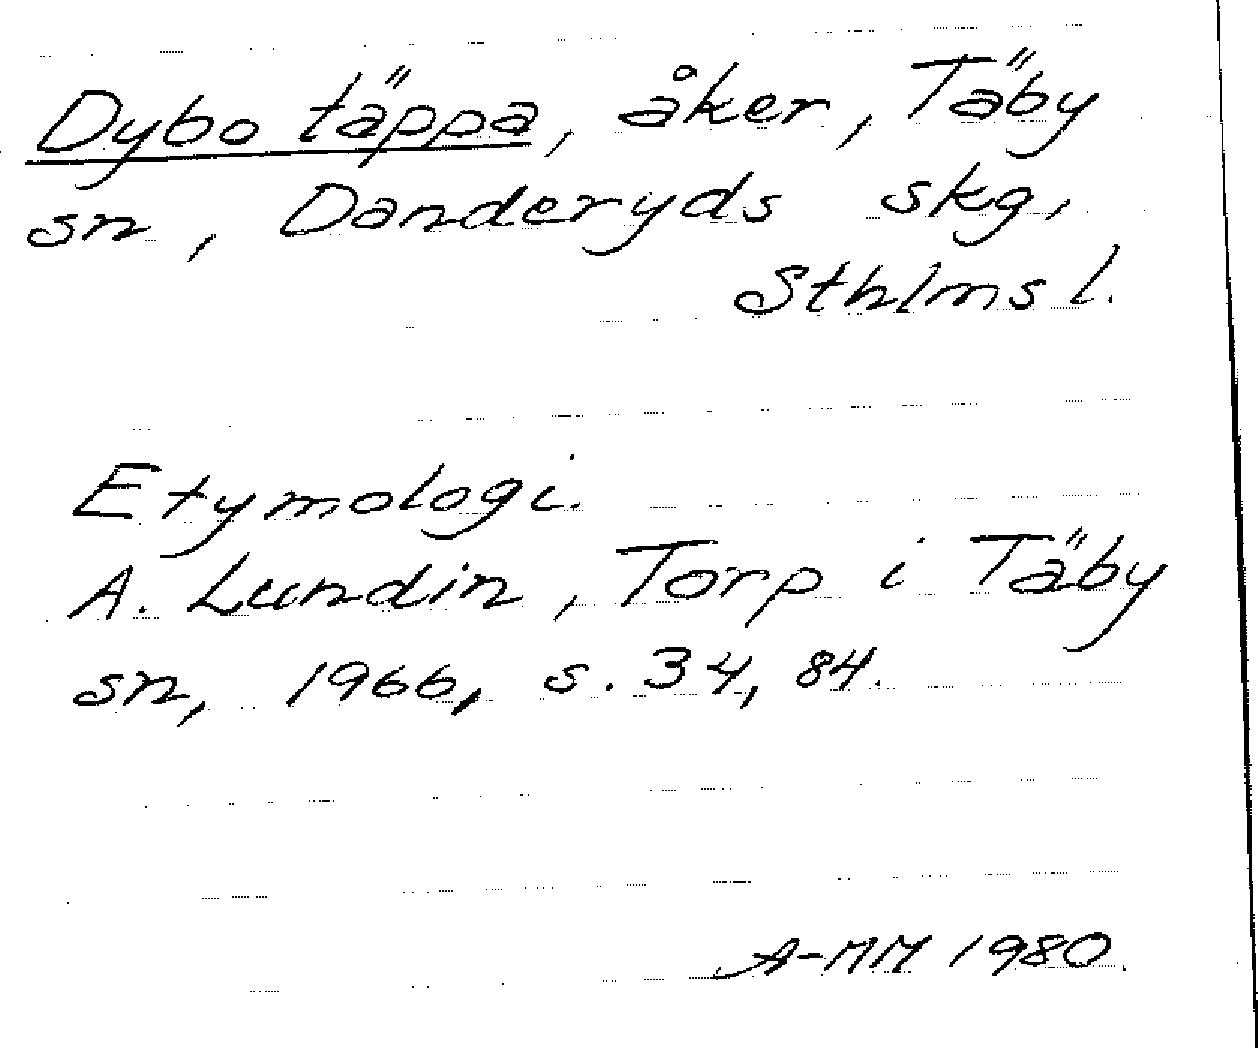 Dybo täppa, åker, Täby
sn, Danderyds skg,
Sthlms l.
Etymologi.
A. Lundin, Torp i Täby
sn, 1966, s. 34, 84.
A-MM 1980.